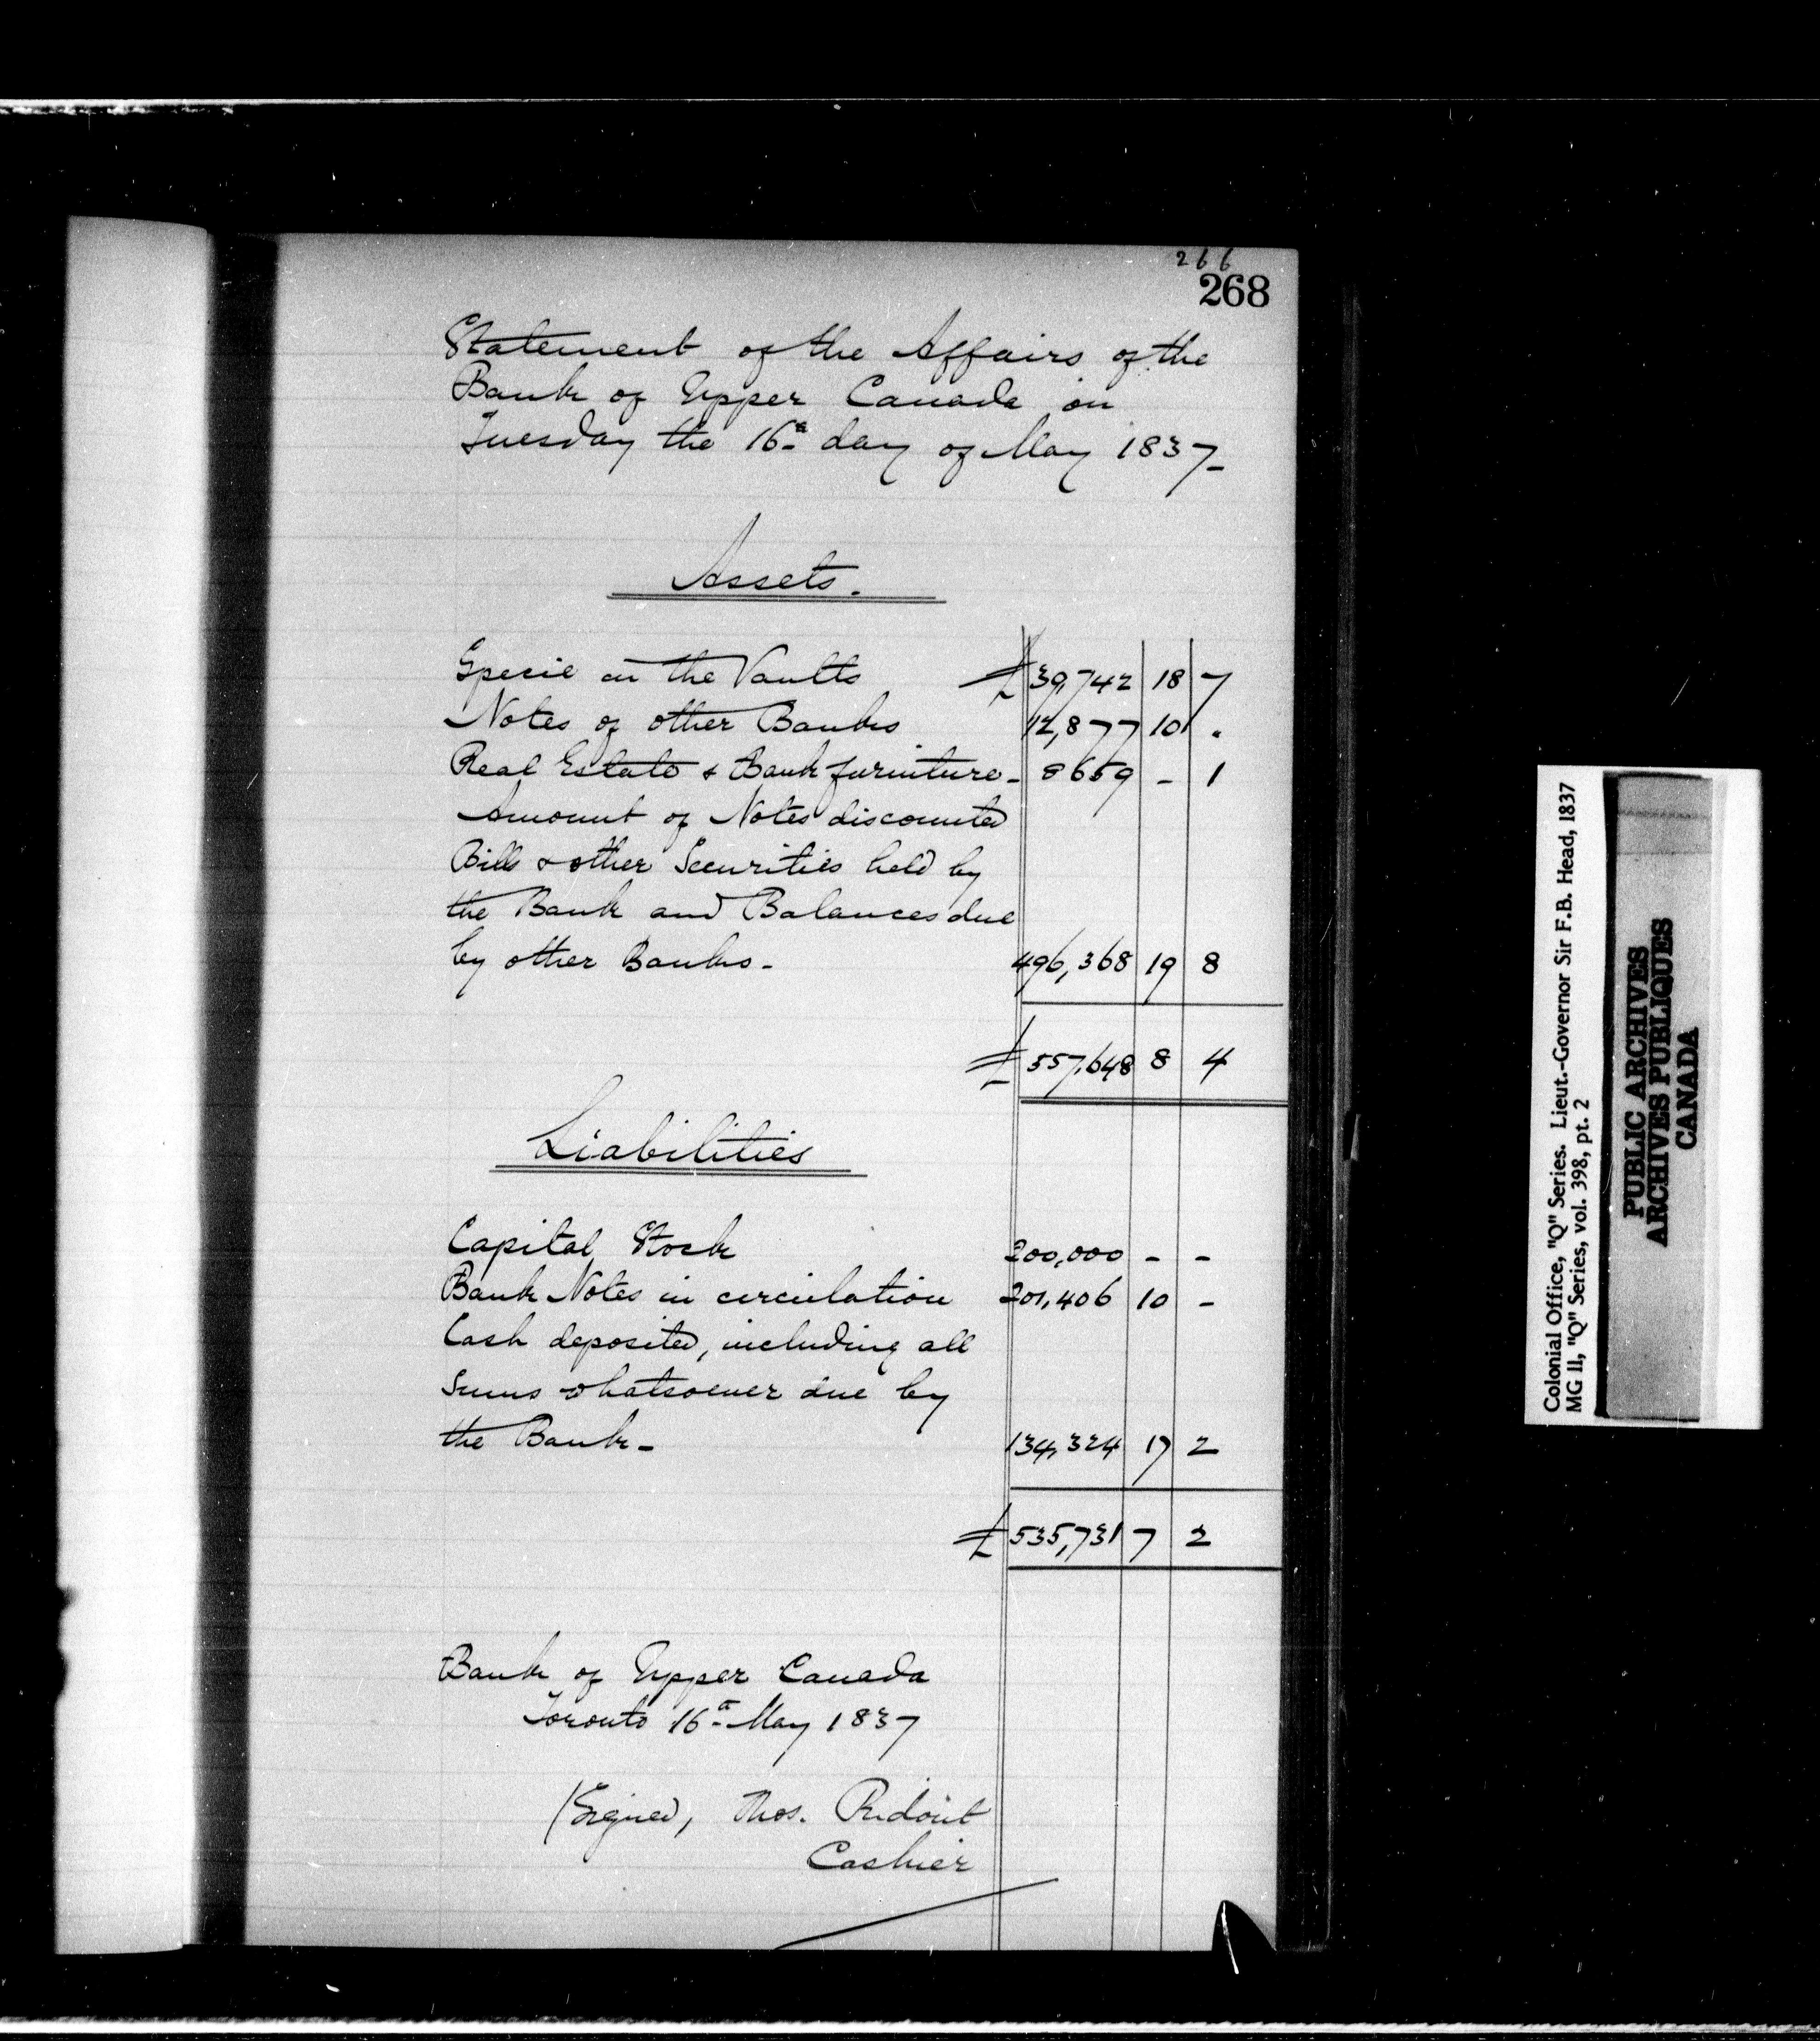 266
268
Statement of the Affairs of the
Bank of Upper Canada on
Tuesday the 16th day of May 1837-
Assets.
Specie in the Vaults £ 39,742 18 7
Notes of other Banks 12,877 10 .
Real Estate & Bank furniture - 8659 - 1
Amount of Notes discounted
Bills & other Securities held by
the Bank and Balances due
by other Banks - 496,368 19 8
£ 557,648 8 4
Liabilities
Capital Stock 200,000 - -
Bank Notes in circulation 201,406 10 -
Cash deposited, including all
sums whatsoever due by
the Bank - 134,324 17 2
£ 535,731 7 2
Bank of Upper Canada
Toronto 16th May 1837
(Signed, Thos. Ridout
Cashier
Colonial Office, "Q" Series. Lieut.-Governor Sir F.B. Head, 1837
MG 11, "Q" Series, vol. 398, pt. 2
PUBLIC ARCHIVES
ARCHIVES PUBLIQUES
CANADA